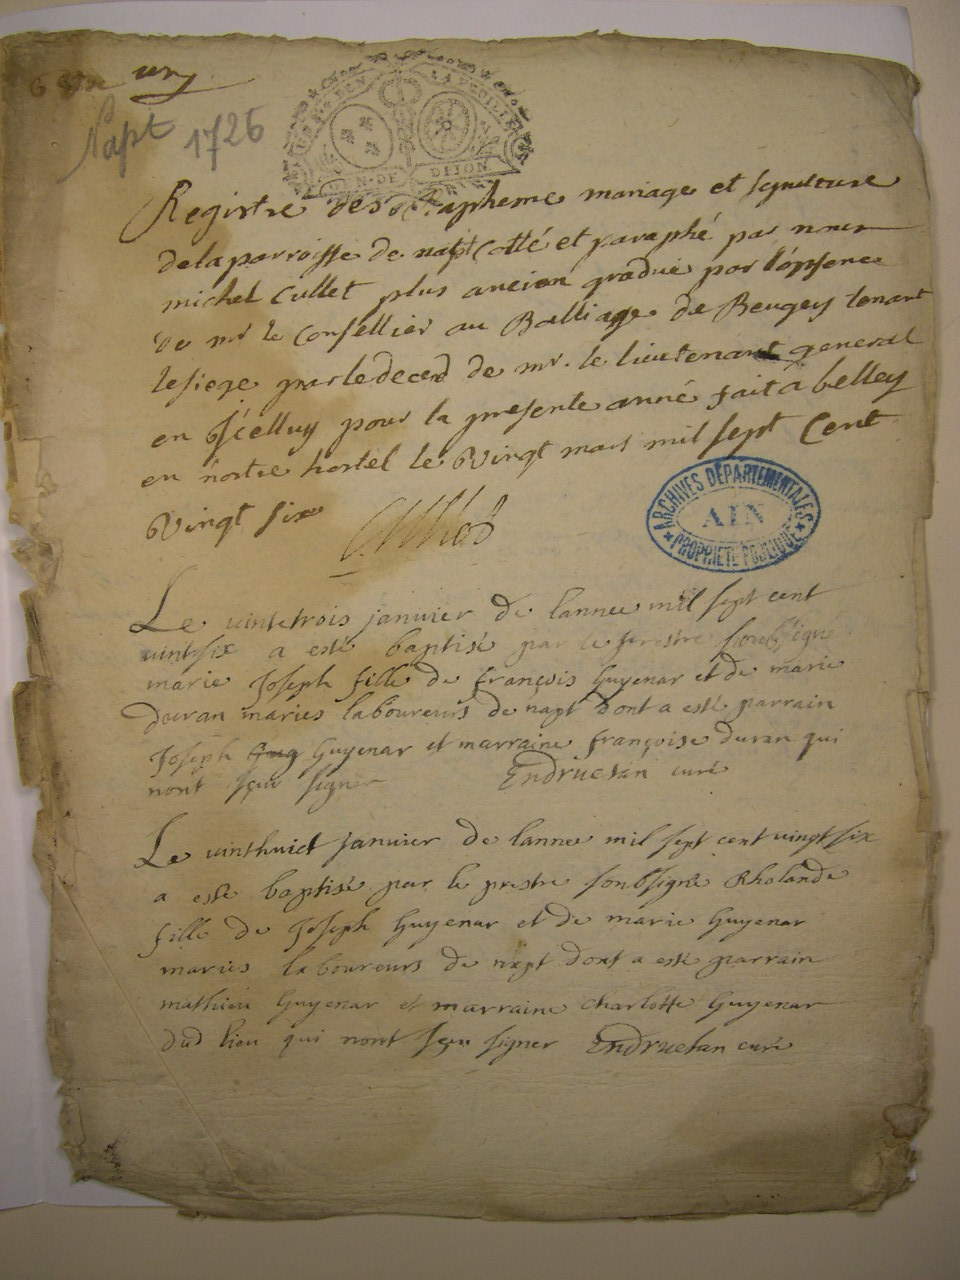 un
Napt 1726
GEN. DE DIJON
Registre des Baptheme mariage et sepulture
de la parroisse de napt Cotté et paraphé par nous
michel Cullet plus ancien gradué par l'apsence
de mr le Conseillier au Balliage de Beugey tenant
le siege par le deced de mr. le lieutenant general
en Icelluy pour la presente anné fait à belley
en nostre hostel le Vingt mars mil sept Cent
Vingt six
ARCHIVES DÉPARTEMENTALES
AIN
PROPRIÉTÉ PUBLIQUE
Le vintetrois janvier de lannee mil sept cent
vintsix a esté baptisé par le prestre soubsigne
marie Joseph fille de françois Guyenar et de marie
duran maries laboureurs de napt dont a esté parrain
Joseph Guyenar et marraine françoise duran qui
nont sceu signer Endruetan curé
Le vinthuict janvier de lannee mil sept cent vingt six
a esté baptisé par le prestre soubsigné Rholande
fille de Joseph Guyenar et de marie Guyenar
maries laboureurs de napt dont a esté parrain
mathieu Guyenar et marraine charlotte Guyenar
dud lieu qui nont sceu signer Endruetan curé